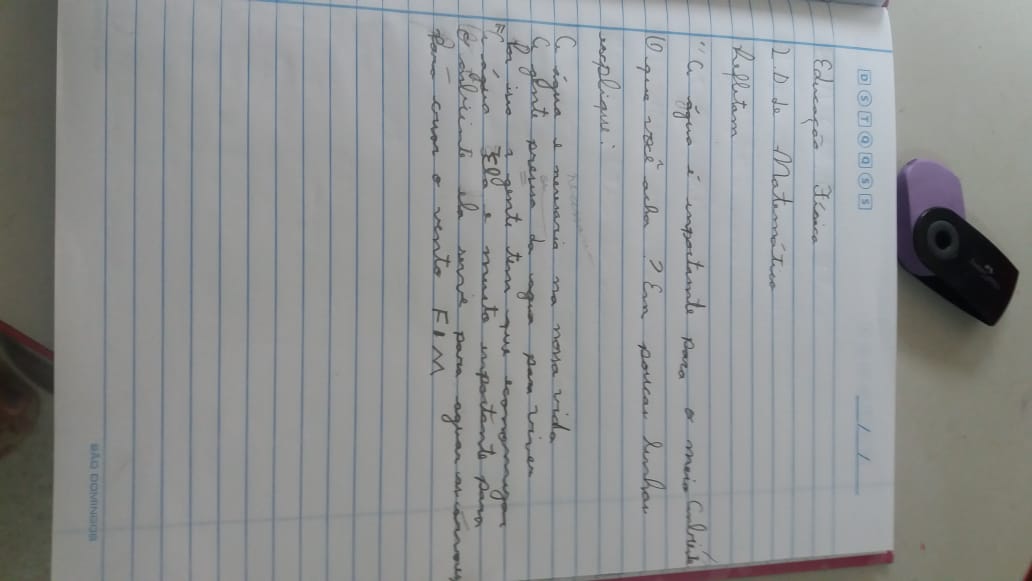 D S T Q Q S S
__/__/__
Educação Física
L.D de Matemática
Reflitam
"A água é importante para o meio Ambiente
O que você acha? Em poucas linhas
explique.
A água e nessaria na nossa vida
A gente presisa da agua para viver
Por isso a gente tem que economizar
A água Ela e muito importante para
O ambiente ela serve para aguar as árvores
Para criar o vento FIM
SÃO DOMINGOS